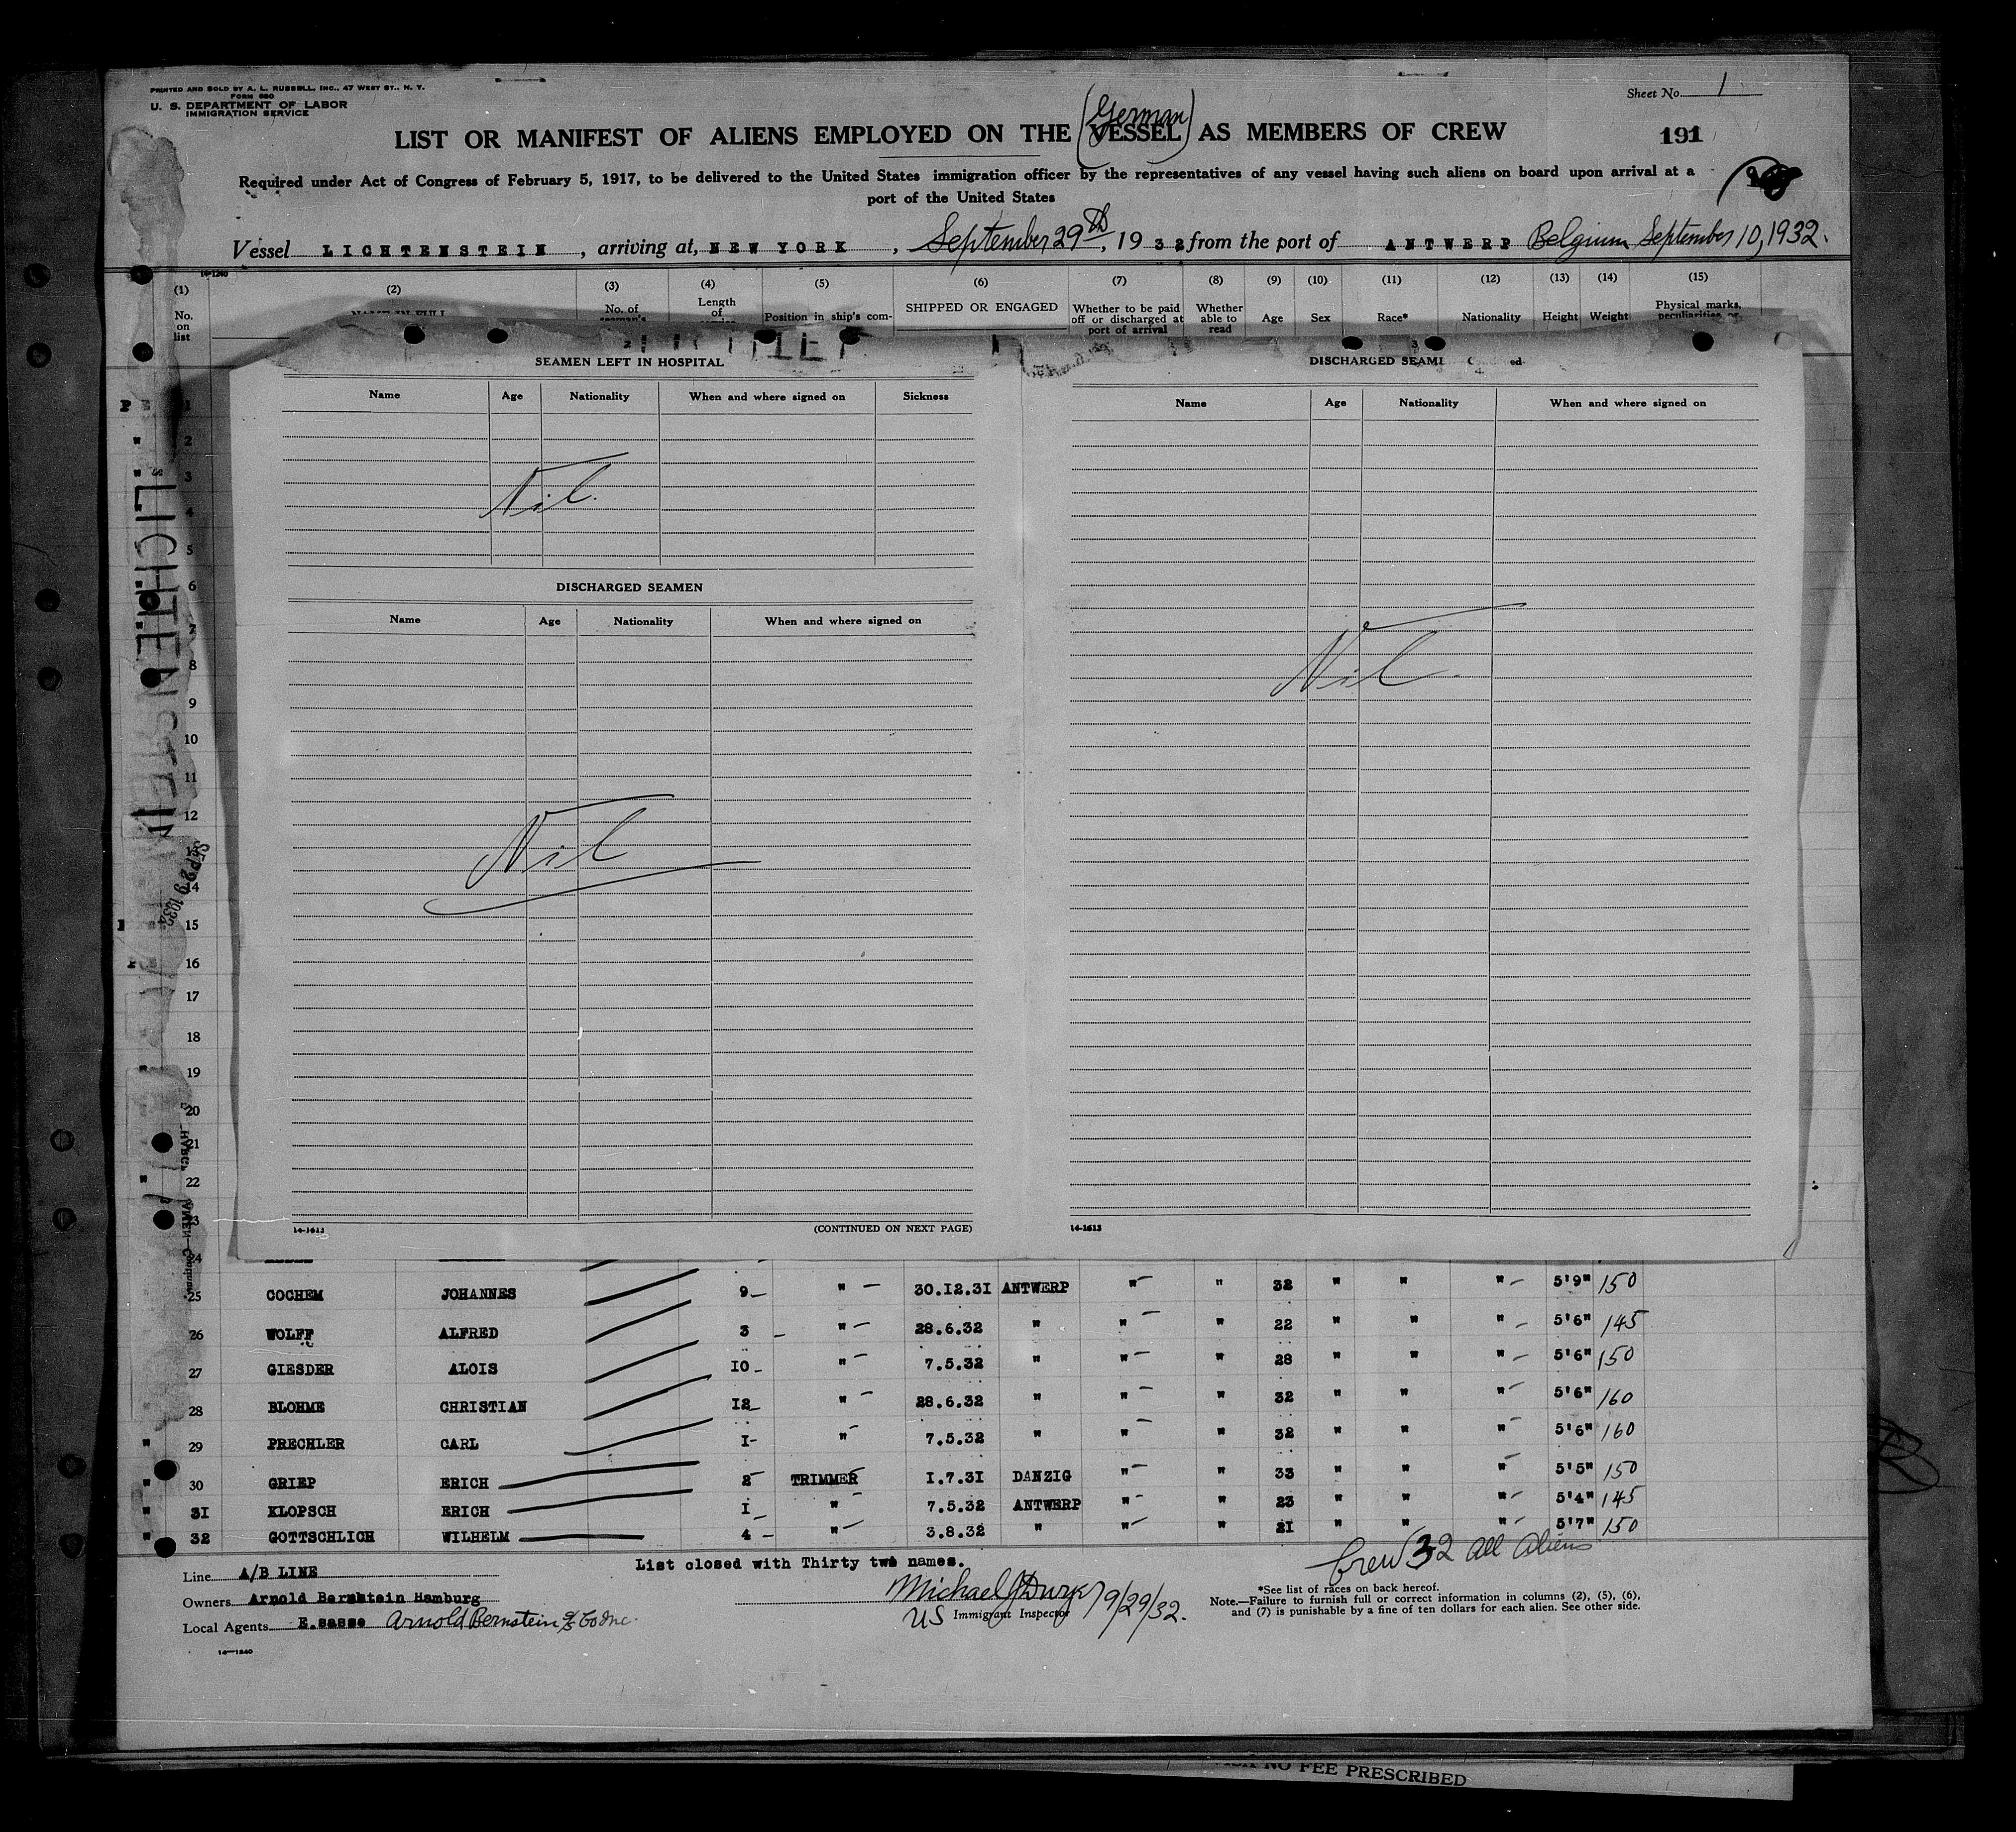 PRINTED AND SOLD BY A. L. RUSSELL, INC., 47 WEST ST., N. Y.
FORM 680
U. S. DEPARTMENT OF LABOR
IMMIGRATION SERVICE
Sheet No. 1
LIST OR MANIFEST OF ALIENS EMPLOYED ON THE (German VESSEL) AS MEMBERS OF CREW
191
Required under Act of Congress of February 5, 1917, to be delivered to the United States immigration officer by the representatives of any vessel having such aliens on board upon arrival at a
port of the United States
Vessel LICHTENSTEIN, arriving at, NEW YORK, September 29th, 1932 from the port of ANTWERP Belgium September 10, 1932.
14-1240
(1) (2) (3) (4) (5) (6) (7) (8) (9) (10) (11) (12) (13) (14) (15)
No. on list
NAME IN FULL
No. of seaman's
Length of
Position in ship's com-
SHIPPED OR ENGAGED
Whether to be paid off or discharged at port of arrival
Whether able to read
Age
Sex
Race*
Nationality
Height
Weight
Physical marks, peculiarities or
LICHTENSTEIN
SEP 29 1932
SEAMEN LEFT IN HOSPITAL
Name Age Nationality When and where signed on Sickness
Nil.
DISCHARGED SEAMEN
Name Age Nationality When and where signed on
Nil
14-1613
(CONTINUED ON NEXT PAGE)
3
DISCHARGED SEAM ed
Name Age Nationality When and where signed on
Nil.
14-1613
1
2
3
4
5
6
7
8
9
10
11
12
14
15
16
17
18
19
20
21
22
23
24
25 COCHEM JOHANNES 9 " 30.12.31 ANTWERP " " 32 " " " 5'9" 150
26 WOLFF ALFRED 3 " 28.6.32 " " " 22 " " " 5'6" 145
27 GIESDER ALOIS 10 " 7.5.32 " " " 28 " " " 5'6" 150
28 BLOHME CHRISTIAN 12 " 28.6.32 " " " 32 " " " 5'6" 160
" 29 PRECHLER CARL 1 " 7.5.32 " " " 32 " " " 5'6" 160
" 30 GRIEP ERICH 2 TRIMMER 1.7.31 DANZIG " " 33 " " " 5'5" 150
" 31 KLOPSCH ERICH 1 " 7.5.32 ANTWERP " " 23 " " " 5'4" 145
" 32 GOTTSCHLICH WILHELM 4 " 3.8.32 " " " 21 " " " 5'7" 150
List closed with Thirty two names.
Crew 32 all aliens
Line A/B LINE
Owners Arnold Bernstein Hamburg
Local Agents E.sasse Arnold Bernstein Co Inc.
Michael J 9/29/32.
US Immigrant Inspector
*See list of races on back hereof.
Note.—Failure to furnish full or correct information in columns (2), (5), (6),
and (7) is punishable by a fine of ten dollars for each alien. See other side.
14—1240
NO FEE PRESCRIBED